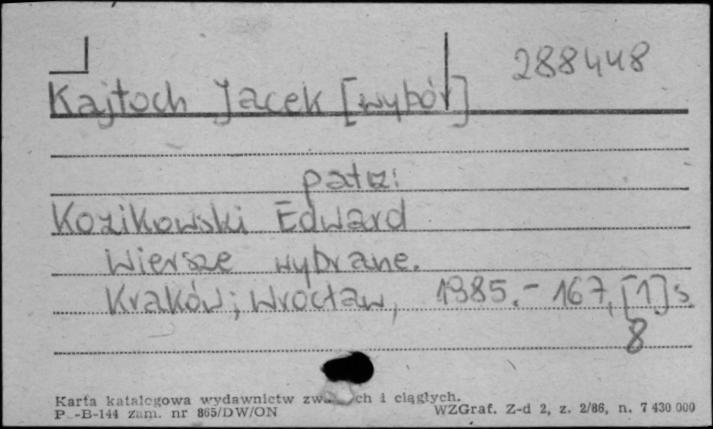 288448
Kajtoch Jacek [wybór]
patrz:
Kozikowski Edward
Wiersze wybrane.
Kraków; Wrocław, 1985.- 167, [1] s
8
Karta katalogowa wydawnictw i ciągłych.
WZGraf. Z-d 2, z. 2/86, n. 7 430 000
P -B-144 zam. nr 865/DW/ON